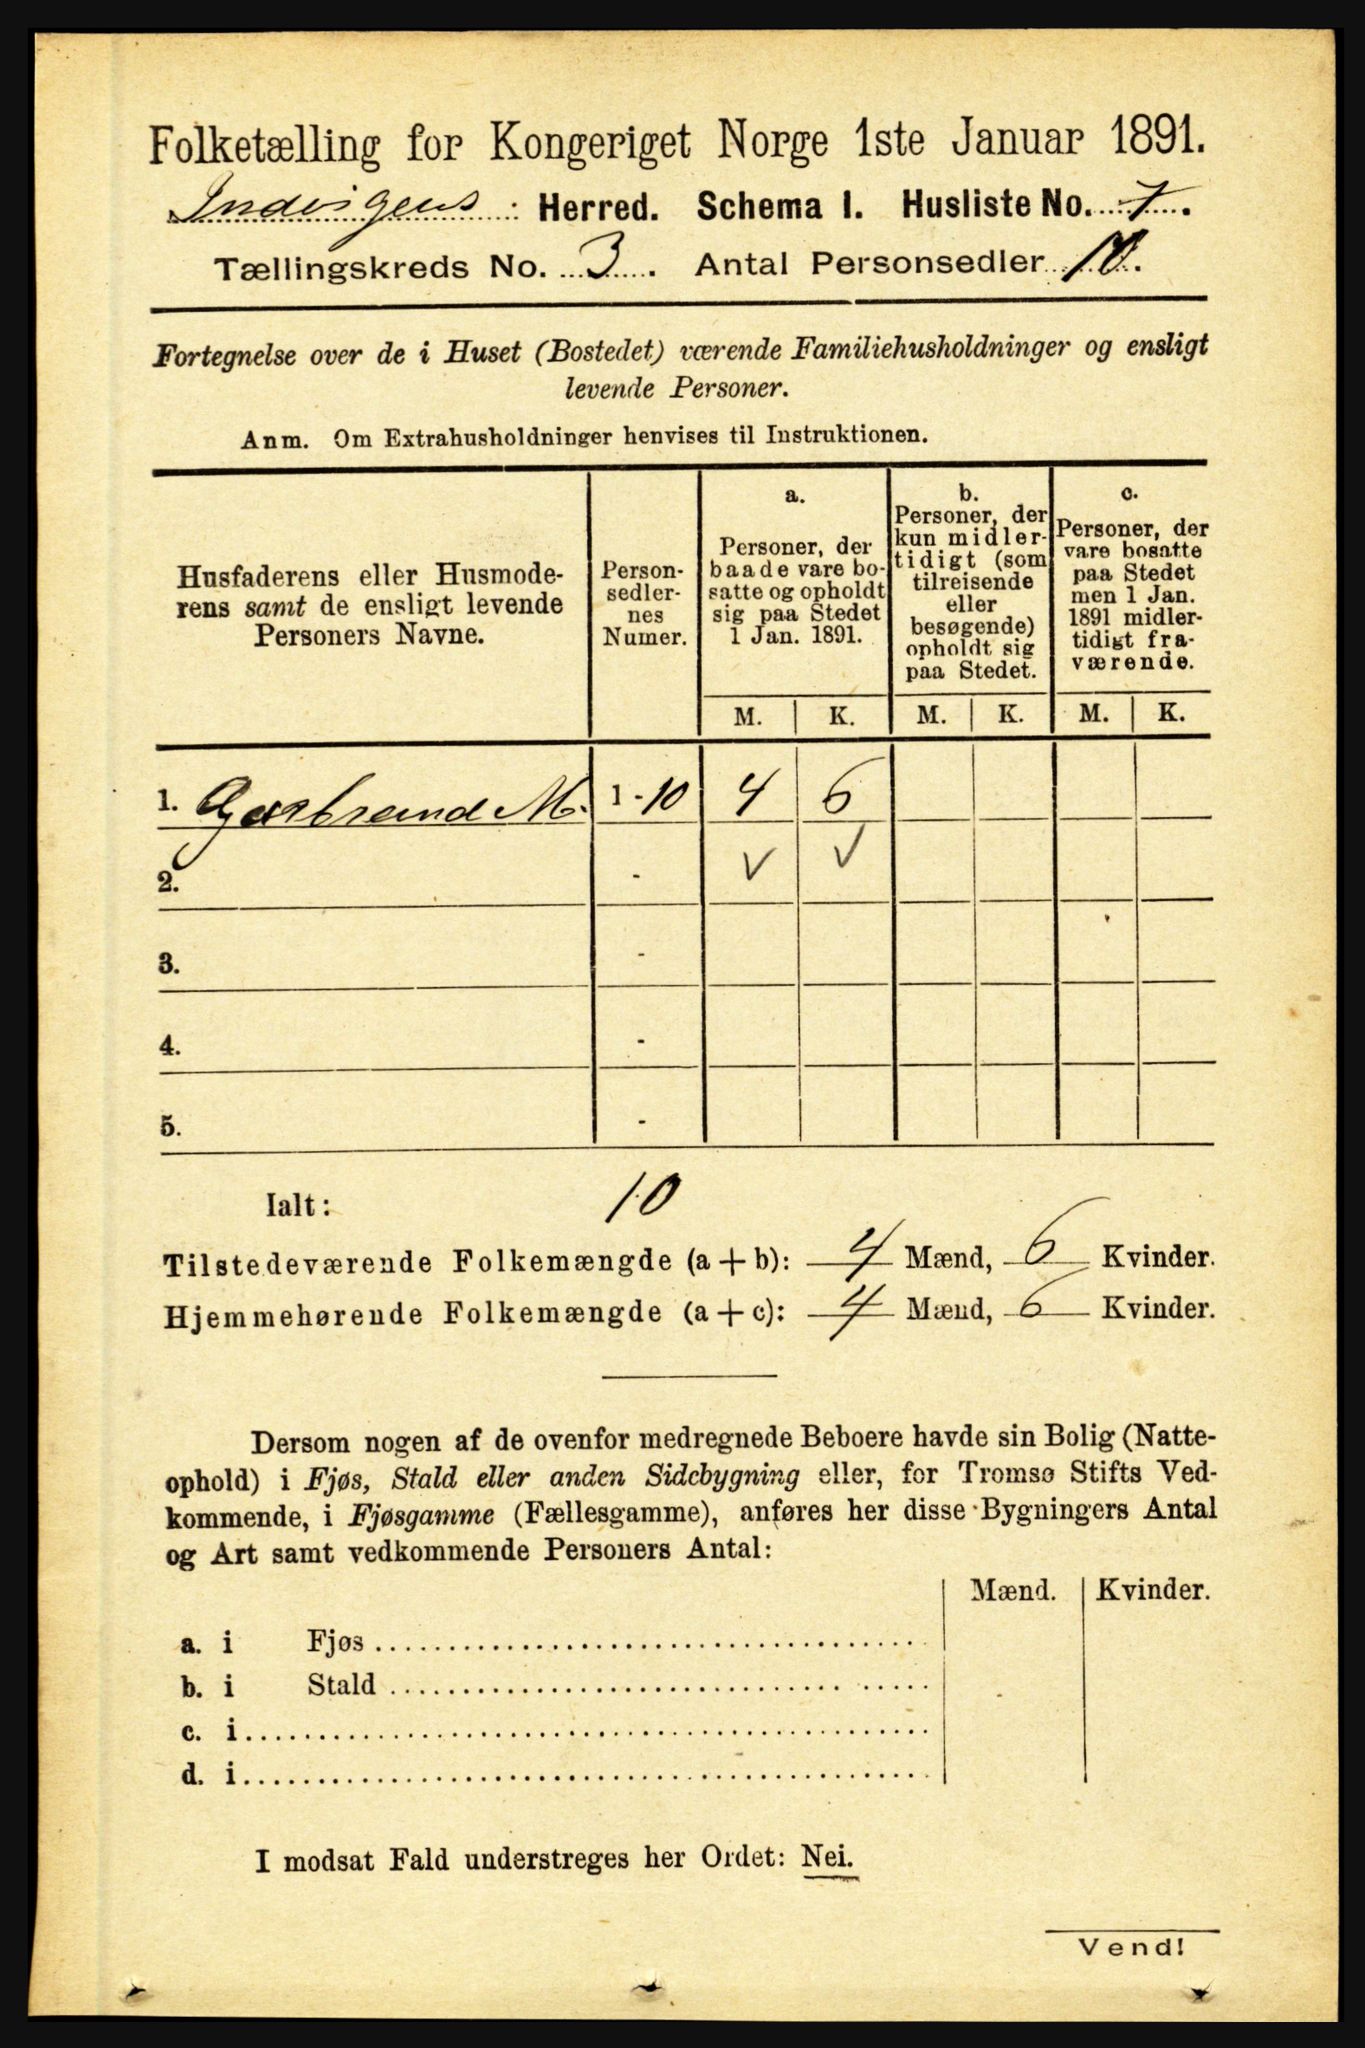 Folketælling for Kongeriget Norge 1ste Januar 1891.
Indvigens Herred. Schema I. Husliste No. 7.
Tællingskreds No. 3. Antal Personsedler 10.
Fortegnelse over de i Huset (Bostedet) værende Familiehusholdninger og ensligt
levende Personer.
Anm. Om Extrahusholdninger henvises til Instruktionen.
Husfaderens eller Husmode-
rens samt de ensligt levende
Personers Navne.
Person-
sedler-
nes
Numer.
a.
Personer, der
baade vare bo-
satte og opholdt
sig paa Stedet
1 Jan. 1891.
b.
Personer, der
kun midler-
tidigt (som
tilreisende
eller
besøgende)
opholdt sig
paa Stedet.
c.
Personer, der
vare bosatte
paa Stedet
men 1 Jan.
1891 midler-
tidigt fra-
værende.
M. K. M. K. M. K.
1. Gjerbrand M. 1-10 4 6
2. - √ √
3. -
4. -
5. -
Ialt: 10
Tilstedeværende Folkemængde (a+b): 4 Mænd, 6 Kvinder.
Hjemmehørende Folkemængde (a+c): 4 Mænd, 6 Kvinder.
Dersom nogen af de ovenfor medregnede Beboere havde sin Bolig (Natte-
ophold) i Fjøs, Stald eller anden Sidebygning eller, for Tromsø Stifts Ved-
kommende, i Fjøsgamme (Fællesgamme), anføres her disse Bygningers Antal
og Art samt vedkommende Personers Antal:
Mænd. Kvinder.
a. i Fjøs
b. i Stald
c. i
d. i
I modsat Fald understreges her Ordet: Nei.
Vend!